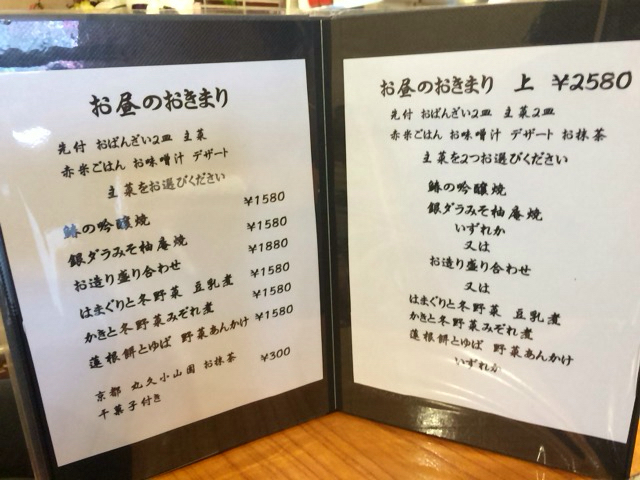 お昼のおきまり
先付 おばんざい2皿 主菜
赤米ごはん お味噌汁 デザート
主菜をお選びください
鰆の吟醸焼 ¥1580
銀ダラみそ柚庵焼 ¥1580
お造り盛り合わせ ¥1880
はまぐりと冬野菜 豆乳煮 ¥1580
かきと冬野菜みぞれ煮 ¥1580
蓮根餅とゆば 野菜あんかけ ¥1580
京都 丸久小山園 お抹茶 ¥300
干菓子付き
お昼のおきまり 上 ¥2580
先付 おばんざい2皿 主菜2皿
赤米ごはん お味噌汁 デザート お抹茶
主菜を2つお選びください
鰆の吟醸焼
銀ダラみそ柚庵焼
いずれか
又は
お造り盛り合わせ
又は
はまぐりと冬野菜 豆乳煮
かきと冬野菜みぞれ煮
蓮根餅とゆば 野菜あんかけ
いずれか